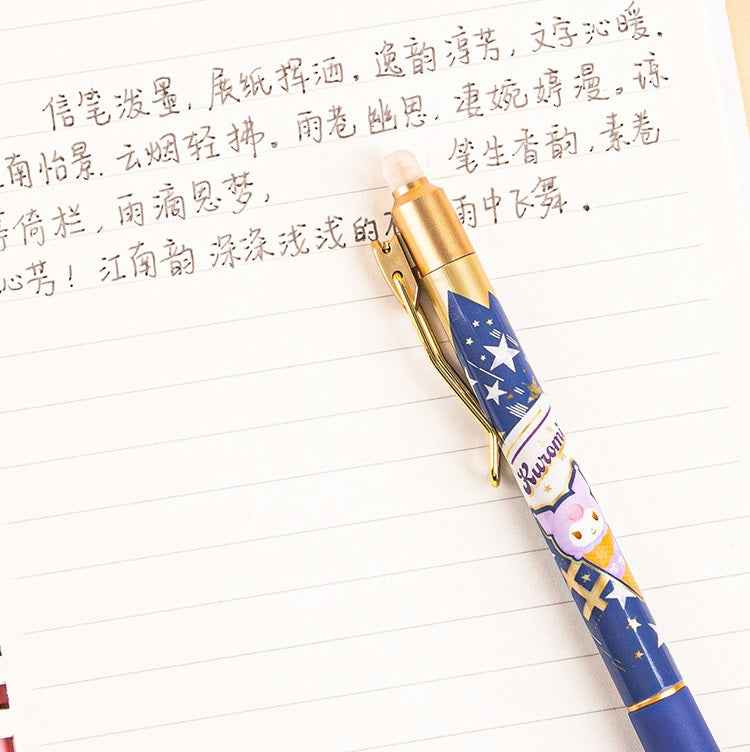 信笔泼墨,展纸挥洒。逸韵淳芳,文字沁暖.
南怡景.云烟轻拂。雨巷幽思.凄婉婷漫。谅
倚栏,雨滴思梦, 笔生香韵,素卷
心芳!江南韵深深浅浅的 雨中飞舞.
Kuromi